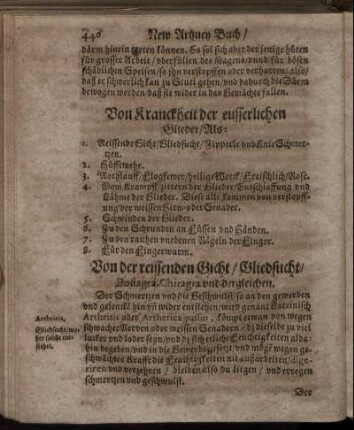 440 New Artzney Buch /
därm hinein treten können. So sol sich aber der jenige hüten
für grosser Arbeit / vberfüllen des Magens / vnnd für bösen
schädlichen Speisen / so jhn verstopffen oder verharten / also /
daß er schwerlich kan zu Stuel gehen / vnd dadurch die Därm
bewogen werden / daß sie wider in das Gemächte fallen.
Von Kranckheit der eusserlichen
Glieder / Als:
1. Reissende Gicht / Gliedsucht / Zipperle vnd Knie Schmer-
tzen.
2. Hüfftwehe.
3. Rotzlauff / Flogfewer / heilige Werck / Freischlich / Rose.
4. Vom Krampff / zittern der Glieder / Entschlaffung vnd
Lähme der Glieder. Diese alle kommen von verstopff-
ung der weissen Sinn-oder Senader.
5. Schwinden der Glieder.
6. Zu den Schrunden an Füssen vnd Händen.
7. Zu den rauhen vnebenen Nägeln der Finger.
8. Für den Fingerwurm.
Von der reissenden Gicht / Gliedsucht /
Podagra, Chiragra vnd dergleichen.
Der Schmertzen vnd die Geschwulst / so an den gewerben
vnd gelenckt hin vñ wider entstehen / wird genant Lateinisch
Arthritis oder Arthetica passio, kömpt etwan von wegen
Arthritis,
Gliedsucht / wo-
her solche ent-
stehet.
schwacher Nerven oder weissen Senadern / dz dieselbe zu viel
lucker vnd loder seyn / vnd dz sich etliche Feuchtigkeiten alda-
hin begeben / vnd in die Gewerbe gesetzt / vnd mögē wegen ge-
schwächter Krafft die Feuchtigkeiten nit außarbeiten / dige-
riren vnd verzehren / bleiben also da ligen / vnd erregen
schmertzen vnd geschwulst.
Der